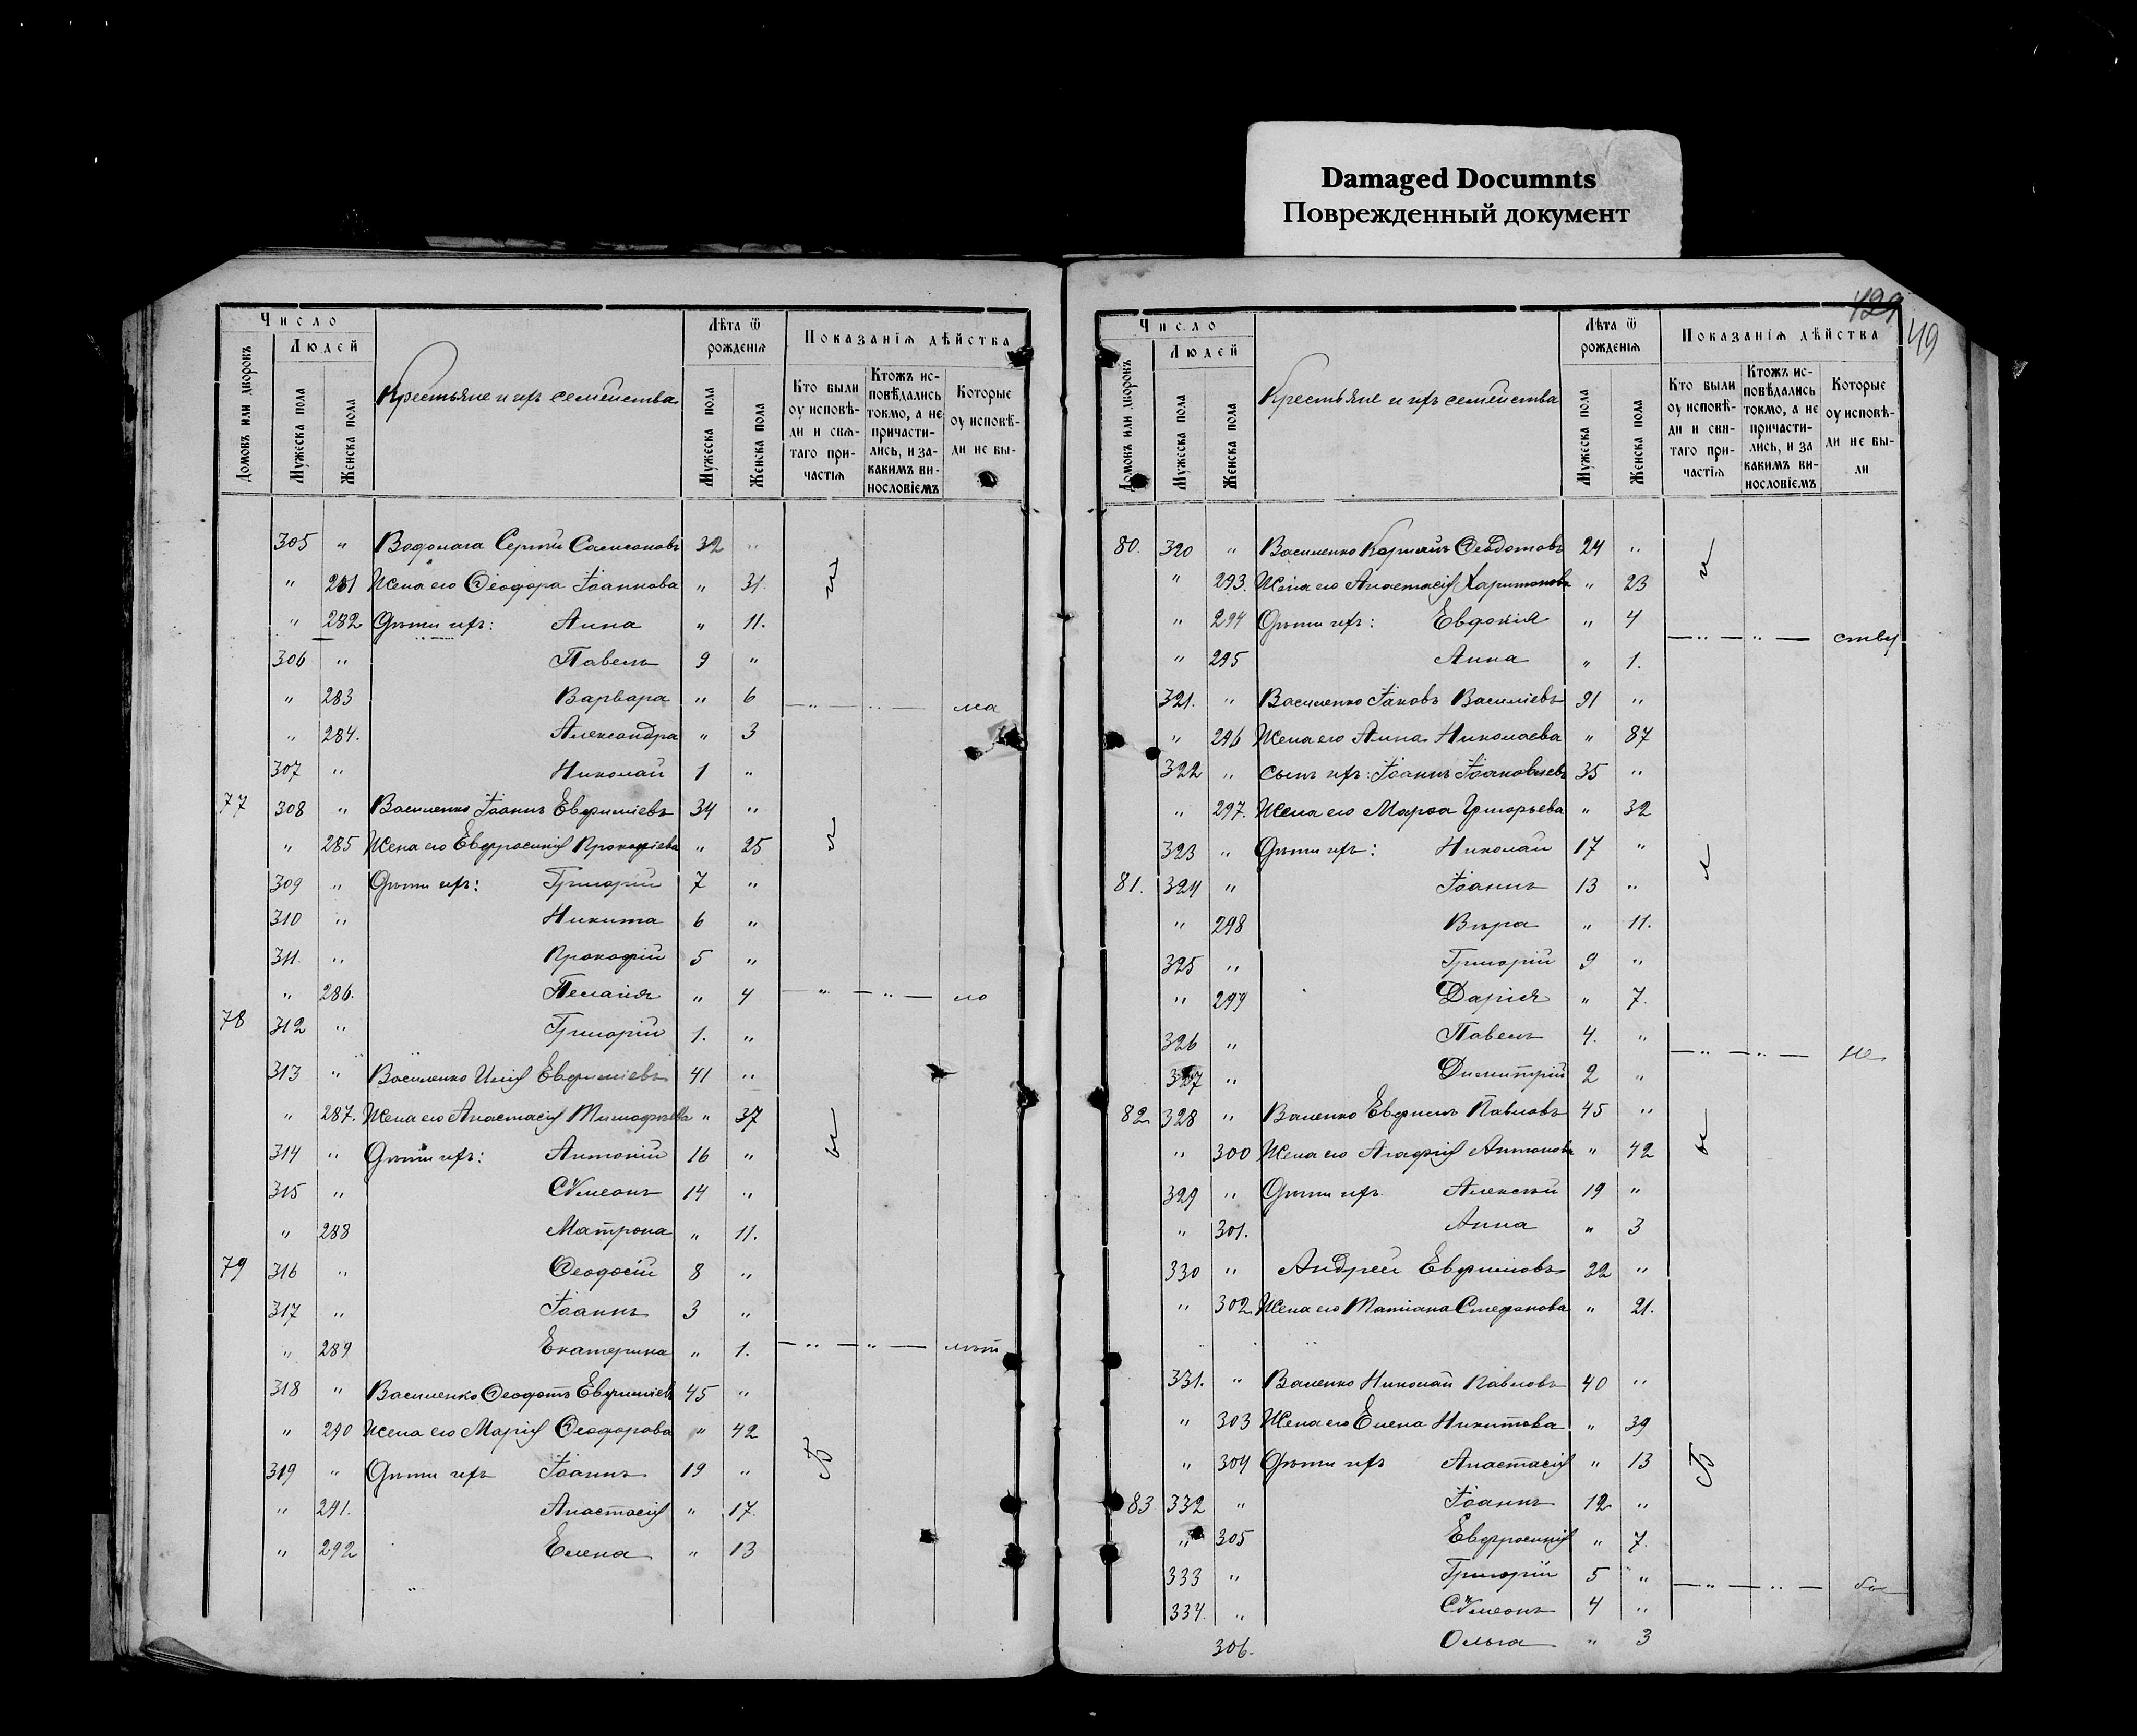 Damaged Documnts
Поврежденный документ
429
49
Число
Людей
Домовъ или дворовъ
Мужеска пола
Женска пола
Крестьяне и ихъ семейства
Лѣта ѿ рожденїѧ
Мужеска пола
Женска пола
Показанїѧ дѣйства
Кто были оу исповѣ-
ди и свѧ-
таго при-
частїѧ
Ктожъ ис-
повѣдались
токмо, а не
причасти-
лись, и за-
какимъ ви-
нословїемъ
Которые
оу исповѣ-
ди не вы-
305 " Водолага Сергій Самсоновъ 32 "
" 281 Жена его Ѳеодора Іоаннова " 31.
" 282 Дѣти ихъ: Анна " 11.
306 " Павелъ 9 "
" 283 Варвара " 6
" 284. Александра " 3
307 " Николай 1 "
77 308 " Василенко Іоаннъ Евфиміевъ 34 "
" 285 Жена его Евфросинія Прокофіева " 25
309 " Дѣти ихъ: Григорій 7 "
310 " Никита 6 "
311. " Прокофій 5 "
" 286. Пелагія " 4
78 312 " Григорій 1. "
313 " Василенко Илія Евфиміевъ 41 "
" 287. Жена его Анастасія Тимофѣева " 37
314 " Дѣти ихъ: Антоній 16 "
315 " Сѵмеонъ 14 "
" 288 Матрона " 11.
79 316 " Ѳеодосій 8 "
317 " Іоаннъ 3 "
" 289 Екатерина " 1.
318 " Василенко Ѳеодотъ Евфиміевъ 45 "
" 290 Жена его Марія Ѳеодорова " 42
319 " Дѣти ихъ Іоаннъ 19 "
" 291. Анастасія " 17.
" 292 Елена " 13
Число
Людей
Домовъ или дворовъ
Мужеска пола
Женска пола
Крестьяне и ихъ семейства
Лѣта ѿ рожденїѧ
Мужеска пола
Женска пола
Показанїѧ дѣйства
Кто были оу исповѣ-
ди и свѧ-
таго при-
частїѧ
Ктожъ ис-
повѣдались
токмо, а не
причасти-
лись, и за
какимъ ви-
нословїемъ
Которые
оу исповѣ-
ди не вы-
ли
80. 320 " Василенко Ѳеодотовъ 24 "
" 293. Жена его Анастасія Харитонова " 23
" 294 Дѣти ихъ: Евдокія " 4
" 295 Анна " 1.
321. " Василенко Іаковъ Василіевъ 91 "
" 296 Жена его Анна Николаева " 87
322 " сынъ ихъ: Іоаннъ Іаковлевъ 35 "
" 297. Жена его Марѳа Григорьева " 32
323 " Дѣти ихъ: Николай 17 "
81. 324 " Іоаннъ 13 "
" 298 Вѣра " 11.
325 " Григорій 9 "
" 299 Дарія " 7.
326 " Павелъ 4. "
327 " Димитрій 2 "
82 328 " Валенко Евфимъ Павловъ 45 "
" 300 Жена его Агафія Антонова " 42
329 " Дѣти ихъ Алексѣй 19 "
" 301. Анна " 3
330 " Андрей Евфимовъ 22 "
" 302 Жена его Татіана Стефанова " 21.
331. " Валенко Николай Павловъ 40 "
" 303 Жена его Елена Никитова " 39
" 304 Дѣти ихъ Анастасія " 13
83 332 " Іоаннъ 12 "
" 305 Евфросинія " 7.
333 " Григорій 5 "
334. " Сѵмеонъ 4 "
306. Ольга " 3